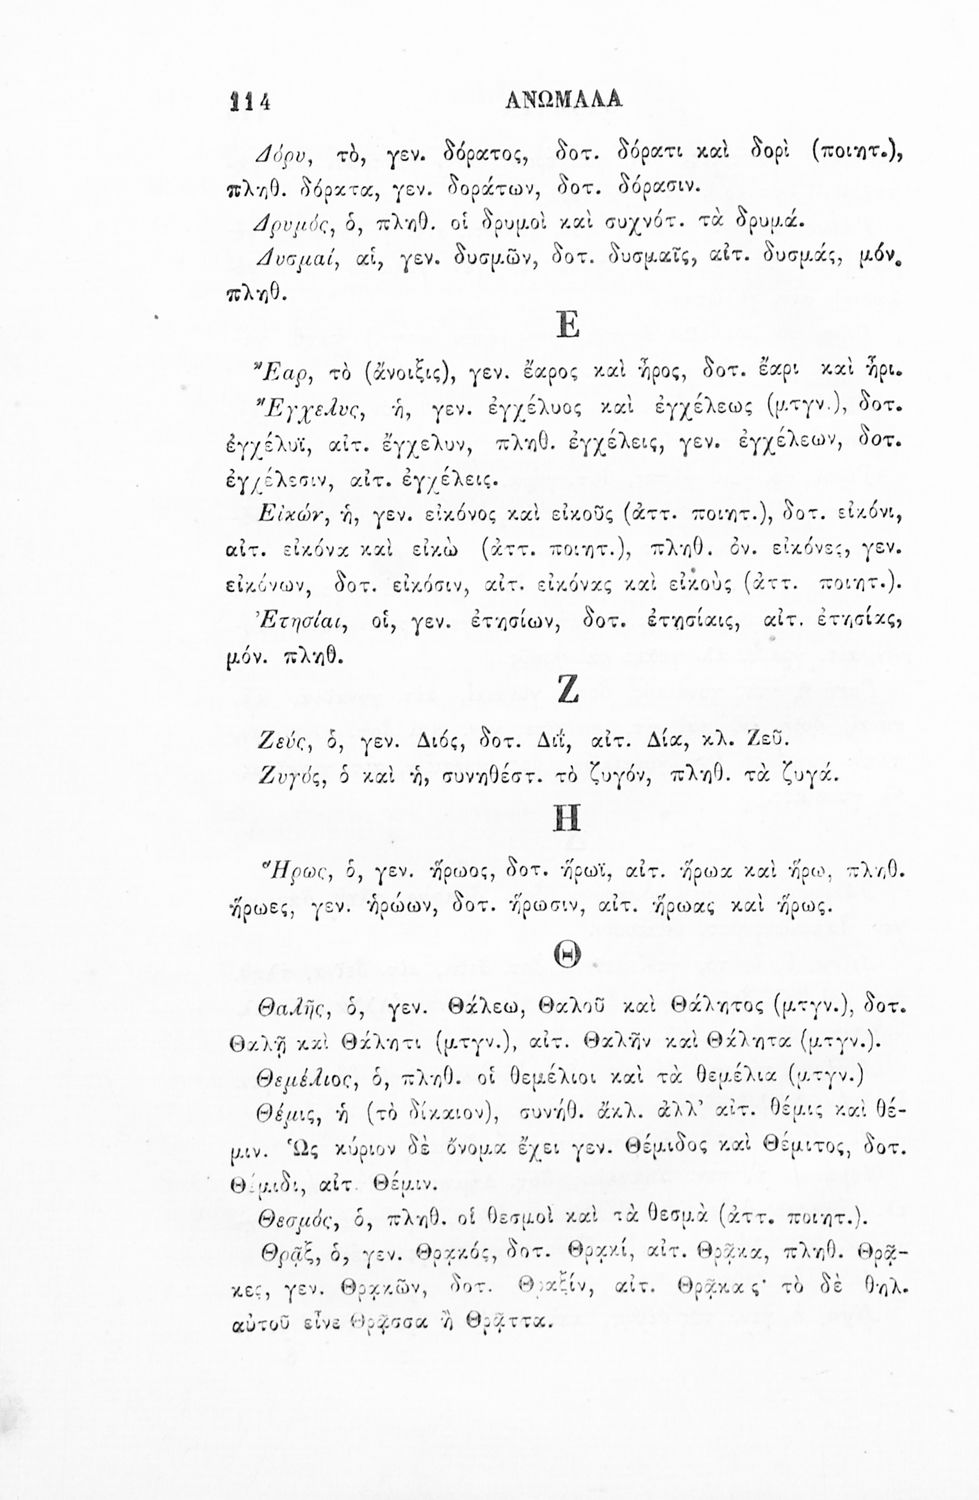 114 ΑΝΩΜΑΛΑ
Δόρυ, τὸ, γεν. δόρατος, δοτ. δόρατι καὶ δορὶ (ποιητ.),
πληθ. δόρατα, γεν. δοράτων, δοτ. δόρασιν.
Δρυμός, ὁ, πληθ. οἱ δρυμοὶ καὶ συχνότ. τὰ δρυμά.
Δυσμαί, αἱ, γεν. δυσμῶν, δοτ. δυσμαῖς, αἰτ. δυσμάς, μόν.
πληθ.
Ε
Ἔαρ, τὸ (ἄνοιξις), γεν. ἔαρος καὶ ἦρος, δοτ. ἔαρι καὶ ἦρι.
Ἔγχελυς, ἡ, γεν. ἐγχέλυος καὶ ἐγχέλεως (μτγν.), δοτ.
ἐγχέλυϊ, αἰτ. ἔγχελυν, πληθ. ἐγχέλεις, γεν. ἐγχέλεων, δοτ.
ἐγχέλεσιν, αἰτ. ἐγχέλεις.
Εἰκών, ἡ, γεν. εἰκόνος καὶ εἰκοῦς (ἀττ. ποιητ.), δοτ. εἰκόνι,
αἰτ. εἰκόνα καὶ εἰκὼ (ἀττ. ποιητ.), πληθ. ὀν. εἰκόνες, γεν.
εἰκόνων, δοτ. εἰκόσιν, αἰτ. εἰκόνας καὶ εἰκοὺς (ἀττ. ποιητ.).
Ἐτησίαι, οἱ, γεν. ἐτησίων, δοτ. ἐτησίαις, αἰτ. ἐτησίας,
μόν. πληθ.
Ζ
Ζεύς, ὁ, γεν. Διός, δοτ. Διΐ, αἰτ. Δία, κλ. Ζεῦ.
Ζυγός, ὁ καὶ ἡ, συνηθέστ. τὸ ζυγόν, πληθ. τὰ ζυγά.
Η
Ἥρως, ὁ, γεν. ἥρωος, δοτ. ἥρωϊ, αἰτ. ἥρωα καὶ ἥρω, πληθ.
ἥρωες, γεν. ἡρώων, δοτ. ἥρωσιν, αἰτ. ἥρωας καὶ ἥρως.
Θ
Θαλῆς, ὁ, γεν. Θάλεω, Θαλοῦ καὶ Θάλητος (μτγν.), δοτ.
Θαλῇ καὶ Θάλητι (μτγν.), αἰτ. Θαλῆν καὶ Θάλητα (μτγν.).
Θεμέλιος, ὁ, πληθ. οἱ θεμέλιοι καὶ τὰ θεμέλια (μτγν.)
Θέμις, ἡ (τὸ δίκαιον), συνήθ. ἄκλ. ἀλλ' αἰτ. θέμις καὶ θέ-
μιν. Ὡς κύριον δὲ ὄνομα ἔχει γεν. Θέμιδος καὶ Θέμιτος, δοτ.
Θέμιδι, αἰτ. Θέμιν.
Θεσμός, ὁ, πληθ. οἱ θεσμοὶ καὶ τὰ θεσμὰ (ἀττ. ποιητ.).
Θρᾷξ, ὁ, γεν. Θρᾳκός, δοτ. Θρᾳκί, αἰτ. Θρᾷκα, πληθ. Θρᾷ-
κες, γεν. Θρᾳκῶν, δοτ. Θραξίν, αἰτ. Θρᾷκας· τὸ δὲ θηλ.
αὐτοῦ εἶνε Θρᾷσσα ἢ Θρᾷττα.